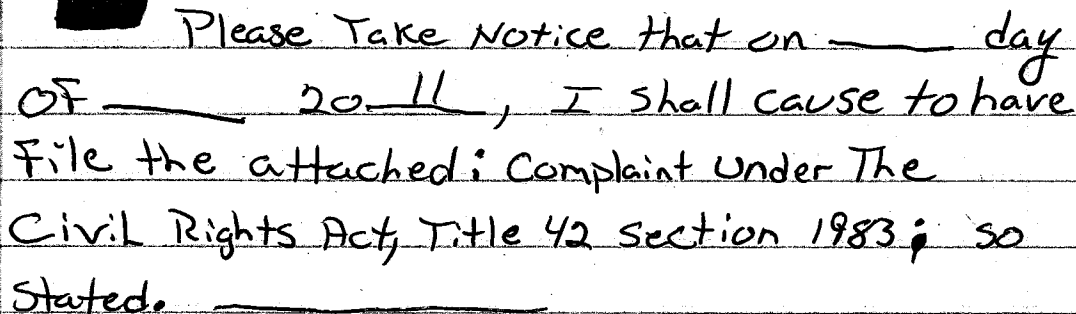 Please Take Notice that on ____ day
OF ____ 20 11, I shall cause to have
File the attached; Complaint Under The
Civil Rights Act, Title 42 section 1983; so
Stated. ____